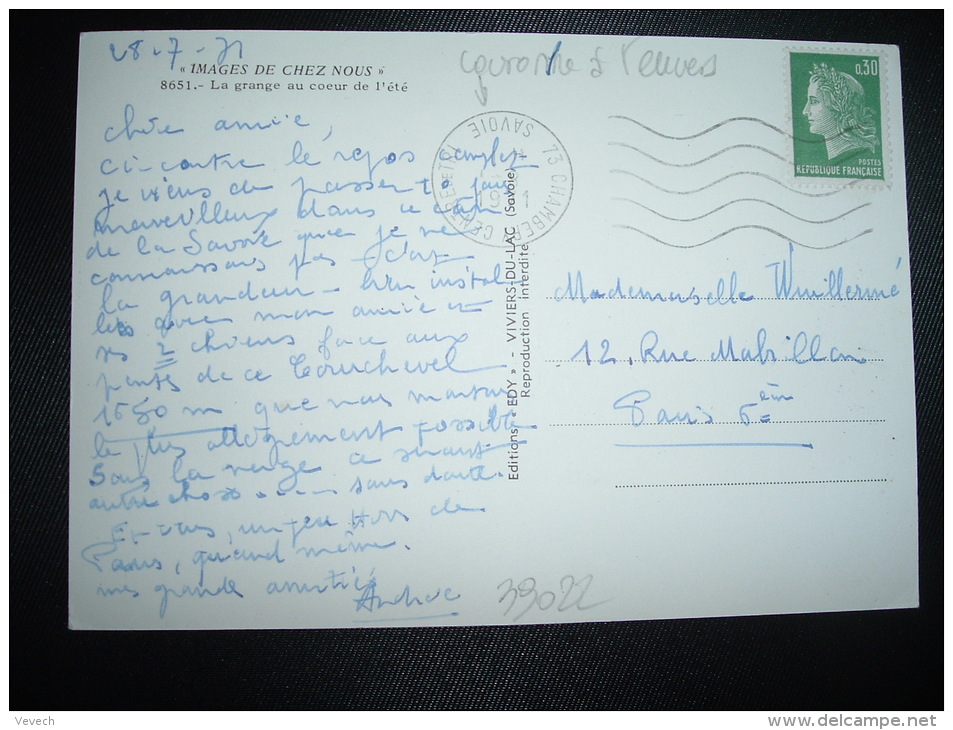 28-7-71
« IMAGES DE CHEZ NOUS »
8651.- La grange au coeur de l'été
couronne à l'envers
chère amie,
ci-contre le repos complet
je viens de passer 10 jours
merveilleux dans ce coin
de la Savoie que je ne
connaissais pas
la grandeur - bien instal-
lés avec mon amie et
ses 2 chiens face aux
pentes de ce Courchevel
1650 m que nous
le plus possible
Sous la neige ce serait
autre chose ..... sans doute.
Et vous, un peu hors de
Paris, quand même.
mes grandes amitiés
Andrée
39022
73 CHAMBERY CENTRE
SAVOIE
0,30
POSTES
RÉPUBLIQUE FRANÇAISE
Editions « EDY » - VIVIERS-DU-LAC (Savoie)
Reproduction interdite
Mademoiselle Wuillermé
12, Rue Mabillon
Paris 6ème
Vevech
www.delcampe.net